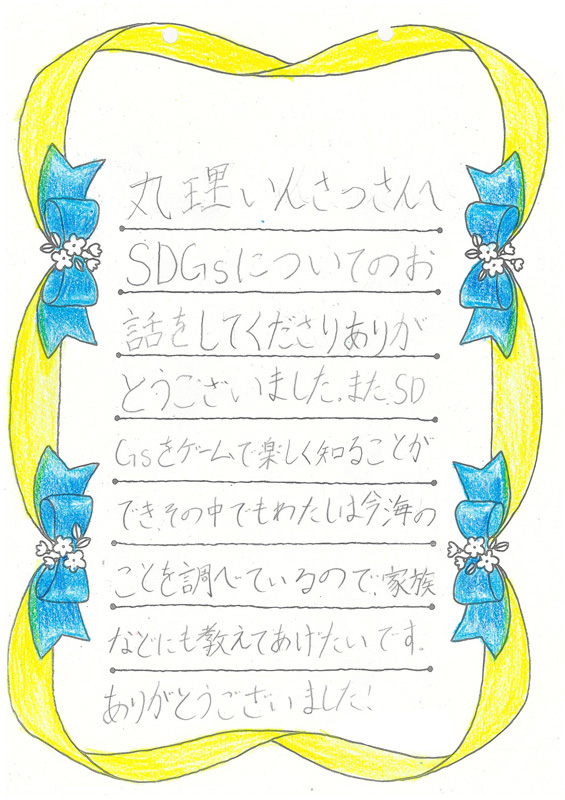 丸理いんさつさんへ
SDGsについてのお
話をしてくださりありが
とうございました。また、SD
Gsをゲームで楽しく知ることが
でき、その中でもわたしは今海の
ことを調べているので、家族
などにも教えてあげたいです。
ありがとうございました!